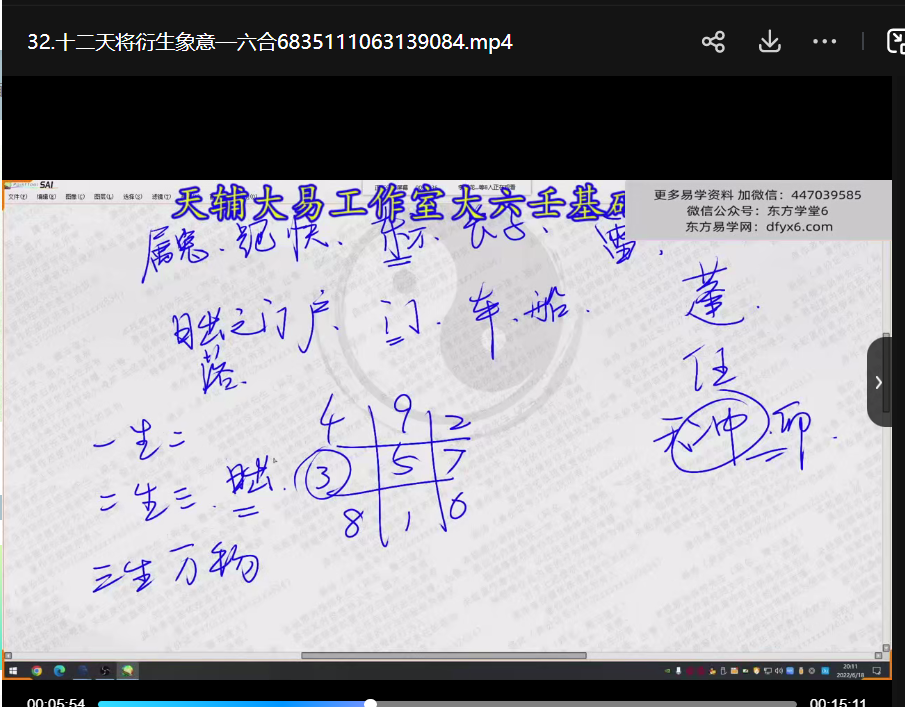 32.十二天将衍生象意—六合6835111063139084.mp4
SAI
天辅大易工作室大六壬基
更多易学资料 加微信：447039585
微信公众号：东方学堂6
东方易学网：dfyx6.com
日出之门户、门.车.船.
落.
蓬.
任
天冲.卯.
4 9 2
3 5 7
8 1 6
一生二
二生三.日出.
三生万物
20:11
2022/6/18
00:05:54
00:15:11